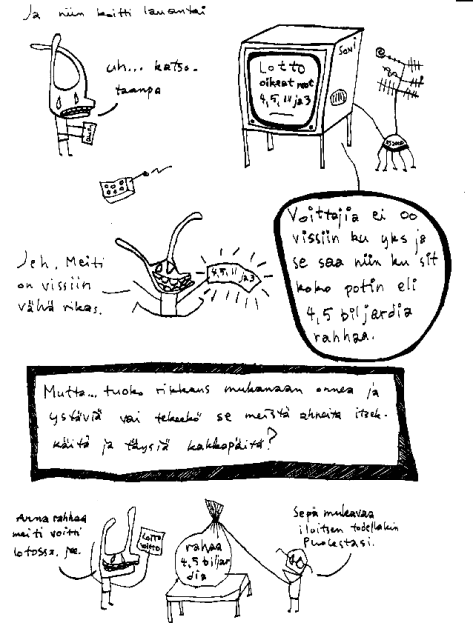 Ja niin koitti lauantai
uh... katso-
taanpa
Soni
Lotto
oikeat rivit
4,5,11 ja 3
Voittajia ei oo
vissiin ku yks ja
se saa niin ku sit
koko potin eli
4,5 biljardia
rahhaa.
Jeh. Meiti
on vissiin
vähä rikas.
4,5,11 ja 3
Mutta... tuoko rikkaus mukanaan onnea ja
ystäviä vai tekeekö se meistä ahneita itsek-
käitä ja täysiä kakkapäitä?
Anna rahhaa
meiti voitti
lotossa. jee.
Lotto
voitto
rahaa
4,5 biljar
dia
Sepä mukavaa
iloitsen todellakin
puolestasi.